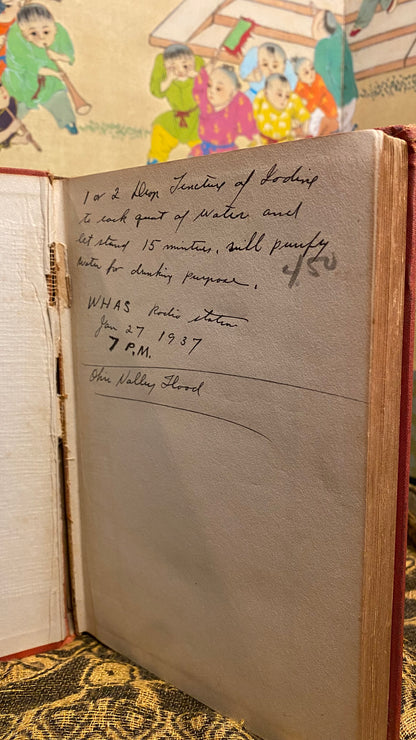 1 or 2 Drop Tincture of Iodine
to each quart of water and
let stand 15 minutes. will purify
water for drinking purpose.
450
WHAS Radio station
Jan 27 1937
7 P.M.
Ohio Valley Flood